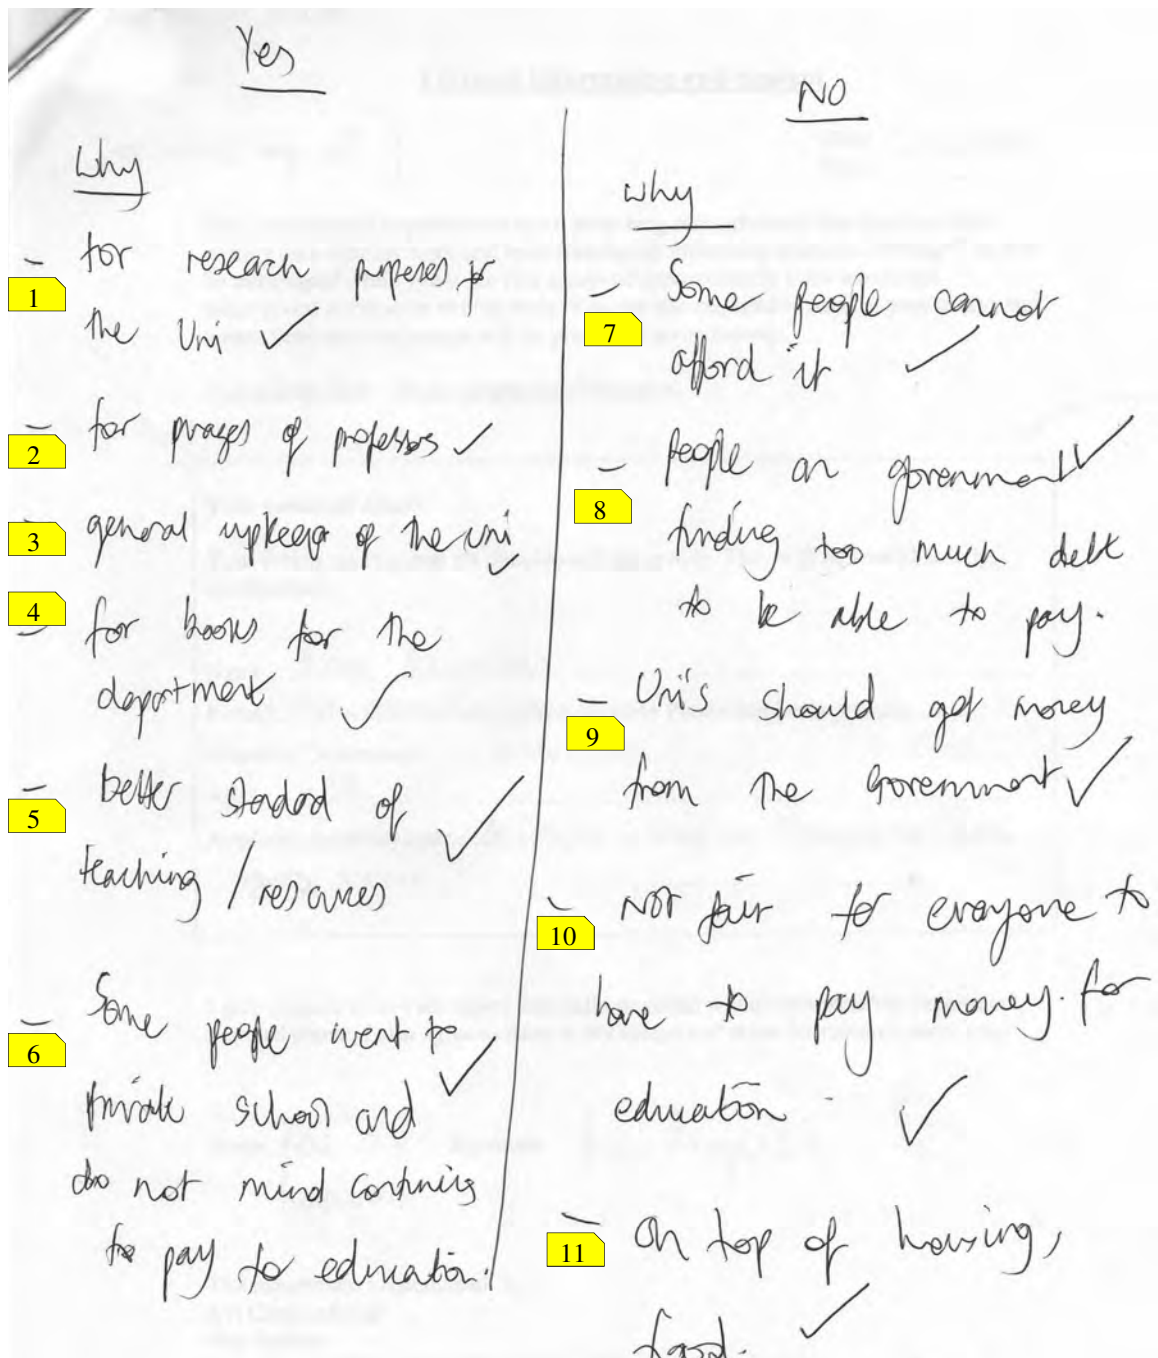 Yes
Why
1
for research purposes for
the Uni
2
for of professors
3
general upkeep of the uni
4
for books for the
department
5
better standard of
teaching / resources
6
Some people went to
private school and
do not mind continuing
to pay for education.
NO
why
7
Some people cannot
afford it
8
people on government
finding too much debt
to be able to pay.
9
Uni's should get money
from the government
10
Not fair for everyone to
have to pay money for
education
11
On top of housing,
food.